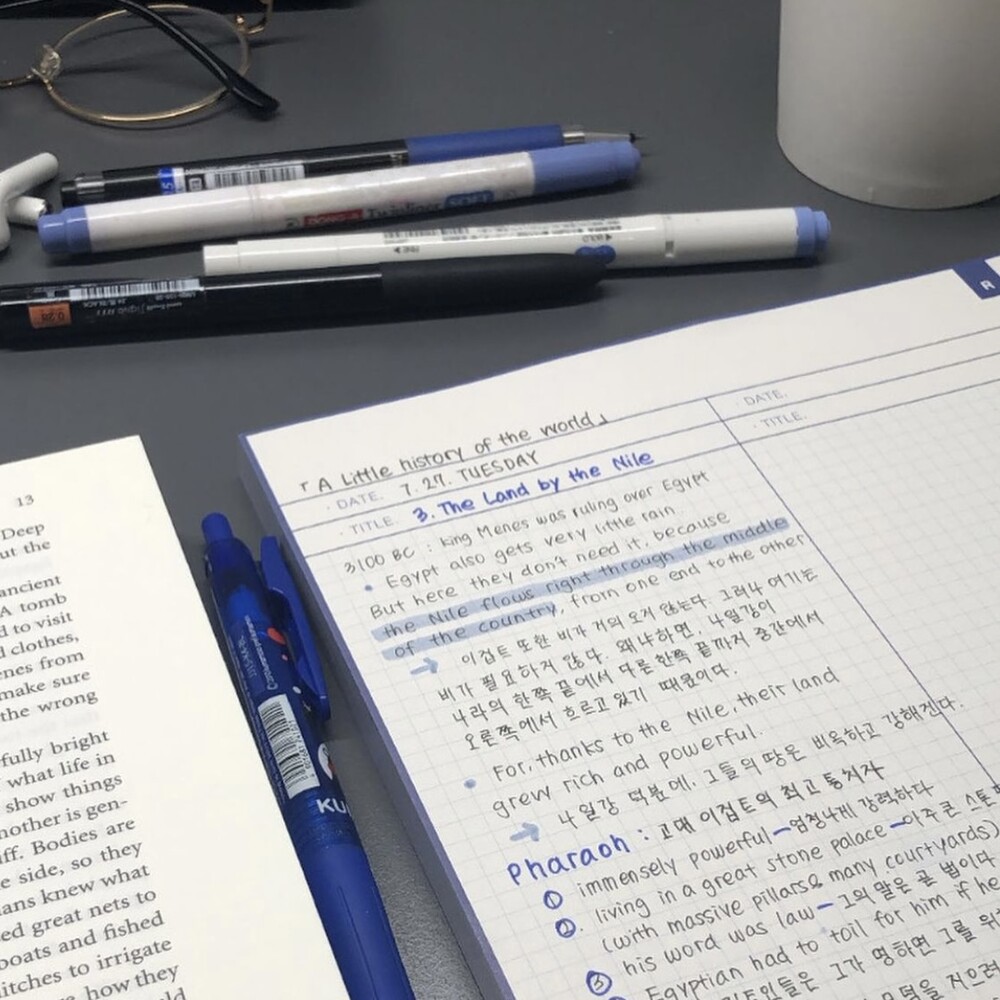 DONG-A Twinliner SOFT
13
Deep
ut the
ancient
A tomb
d to visit
clothes,
nes from
make sure
the wrong
fully bright
what life in
show things
nother is gen-
ff. Bodies are
e side, so they
ans knew what
ed great nets to
boats and fished
litches to irrigate
how they
KU
R
「A Little history of the world」
· DATE. 7. 27. TUESDAY
· TITLE. 3. The Land by the Nile
3100 BC : king Menes was ruling over Egypt
• Egypt also gets very little rain.
But here they don't need it, because
the Nile flows right through the middle
of the country, from one end to the other
→ 이집트 또한 비가 거의 오지 않는다. 그러나 여기는
비가 필요하지 않다. 왜냐하면, 나일강이
나라의 한쪽 끝에서 다른 한쪽 끝까지 중간에서
오른쪽에서 흐르고 있기 때문이다.
• For, thanks to the Nile, their land
grew rich and powerful.
→ 나일강 덕분에, 그들의 땅은 비옥하고 강해진다.
Pharaoh : 고대 이집트의 최고 통치자
① immensely powerful - 엄청나게 강력하다
②. living in a great stone palace - 아주 큰 스토
(with massive pillars & many courtyards)
③ his word was law - 그의 말은 곧 법이다
Egyptian had to toil for him if he
그가 명하면 그를 위
· DATE.
· TITLE.